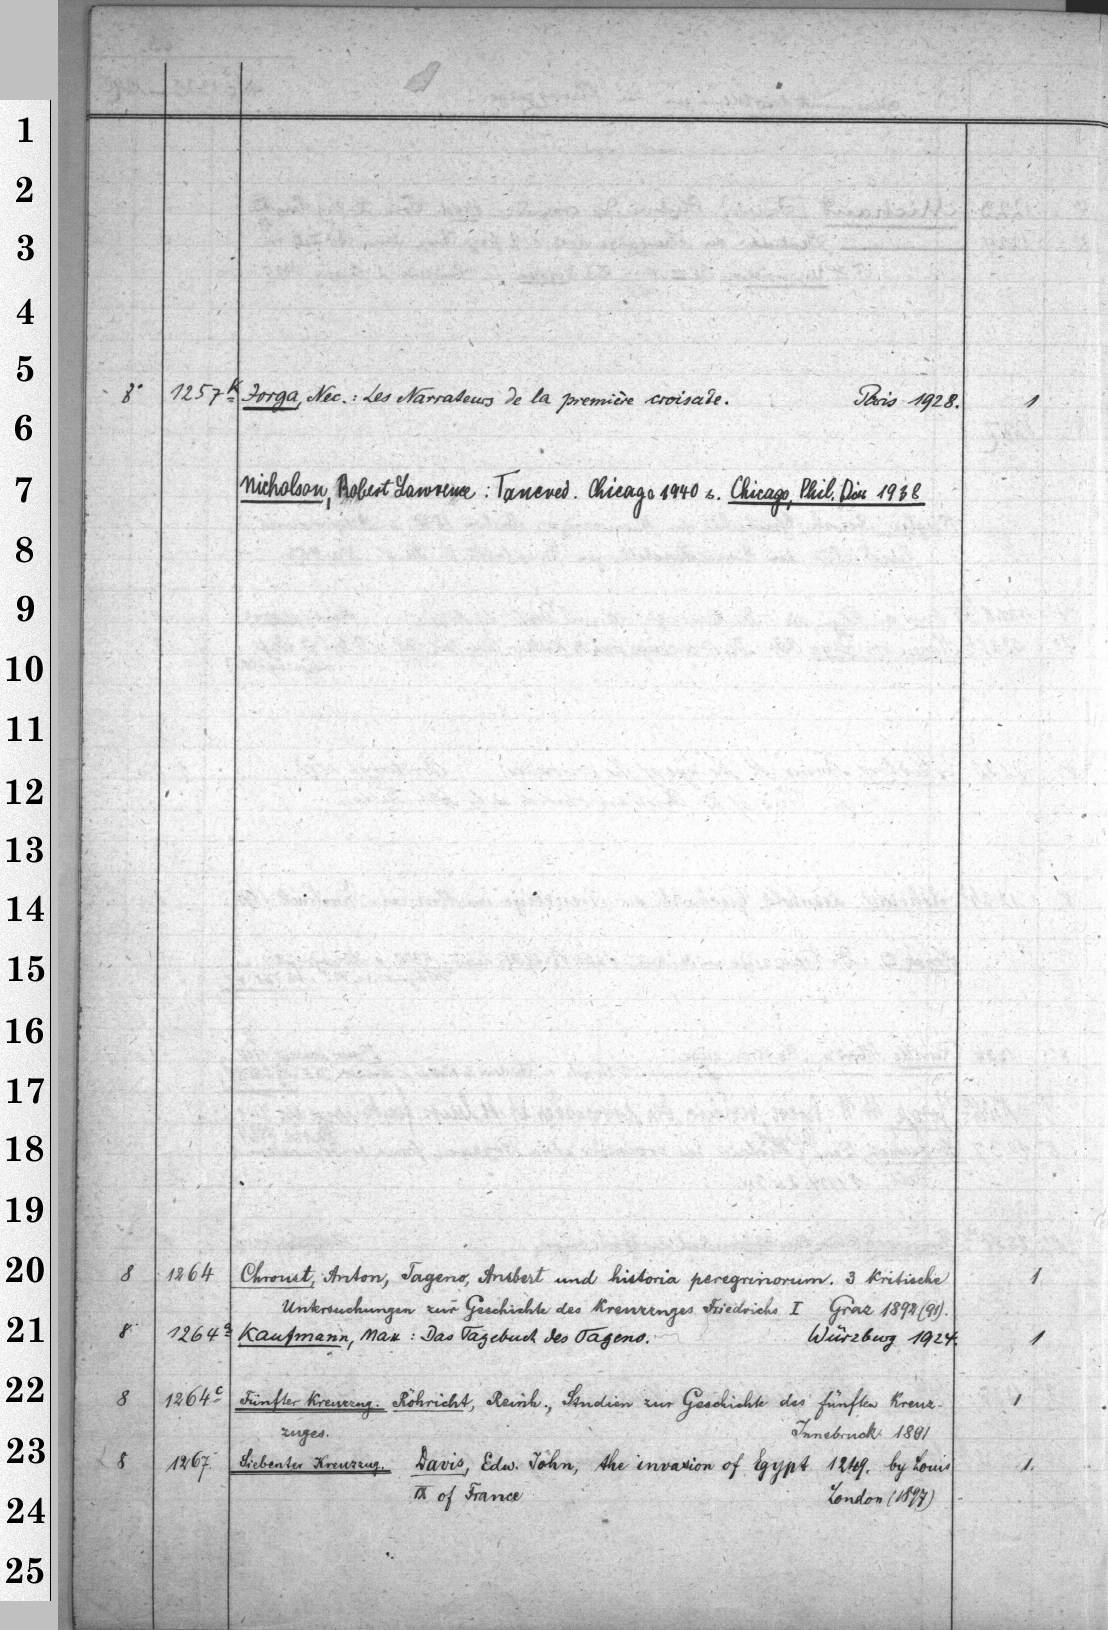 1
2
3
4
5
8° 1257k Jorga, Nec.: Les Narrateurs de la première croisade. Paris 1928. 1
6
7 Nicholson, Robert Lawrence: Tancred. Chicago 1940 s. Chicago, Phil. Diss 1938
8
9
10
11
12
13
14
15
16
17
18
19
20 8 1264 Chroust, Anton, Tageno, Ansbert und historia peregrinorum. 3 kritische 1
Untersuchungen zur Geschichte des Kreuzzuges Friedrichs I Graz 1892 (91).
21 8 1264a Kaufmann, Max: Das Tagebuch des Tageno. Würzburg 1924. 1
22 8 1264c Fünfter Kreuzzug. Röhricht, Reinh., Studien zur Geschichte des fünften Kreuz- 1
zuges. Innsbruck 1891
23 8 1267 Siebenter Kreuzzug. Davis, Edw. John, the invasion of Egypt 1249. by Louis 1.
24 IX of France London (1897)
25